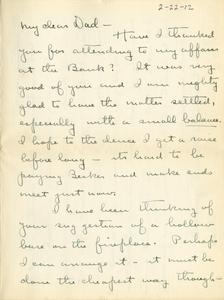 2-22-12
My dear Dad -
Have I thanked
you for attending to my affairs
at the Bank? It was very
good of you and I am mighty
glad to have the matter settled,
especially with a small balance.
I hope to the dence I get a raise
before long - its hard to be
paying Baker and make ends
meet just now.
I have been thinking of
your suggestion of a hollow
base on the fireplace. Perhaps
I can arrange it - it must be
done the cheapest way though -